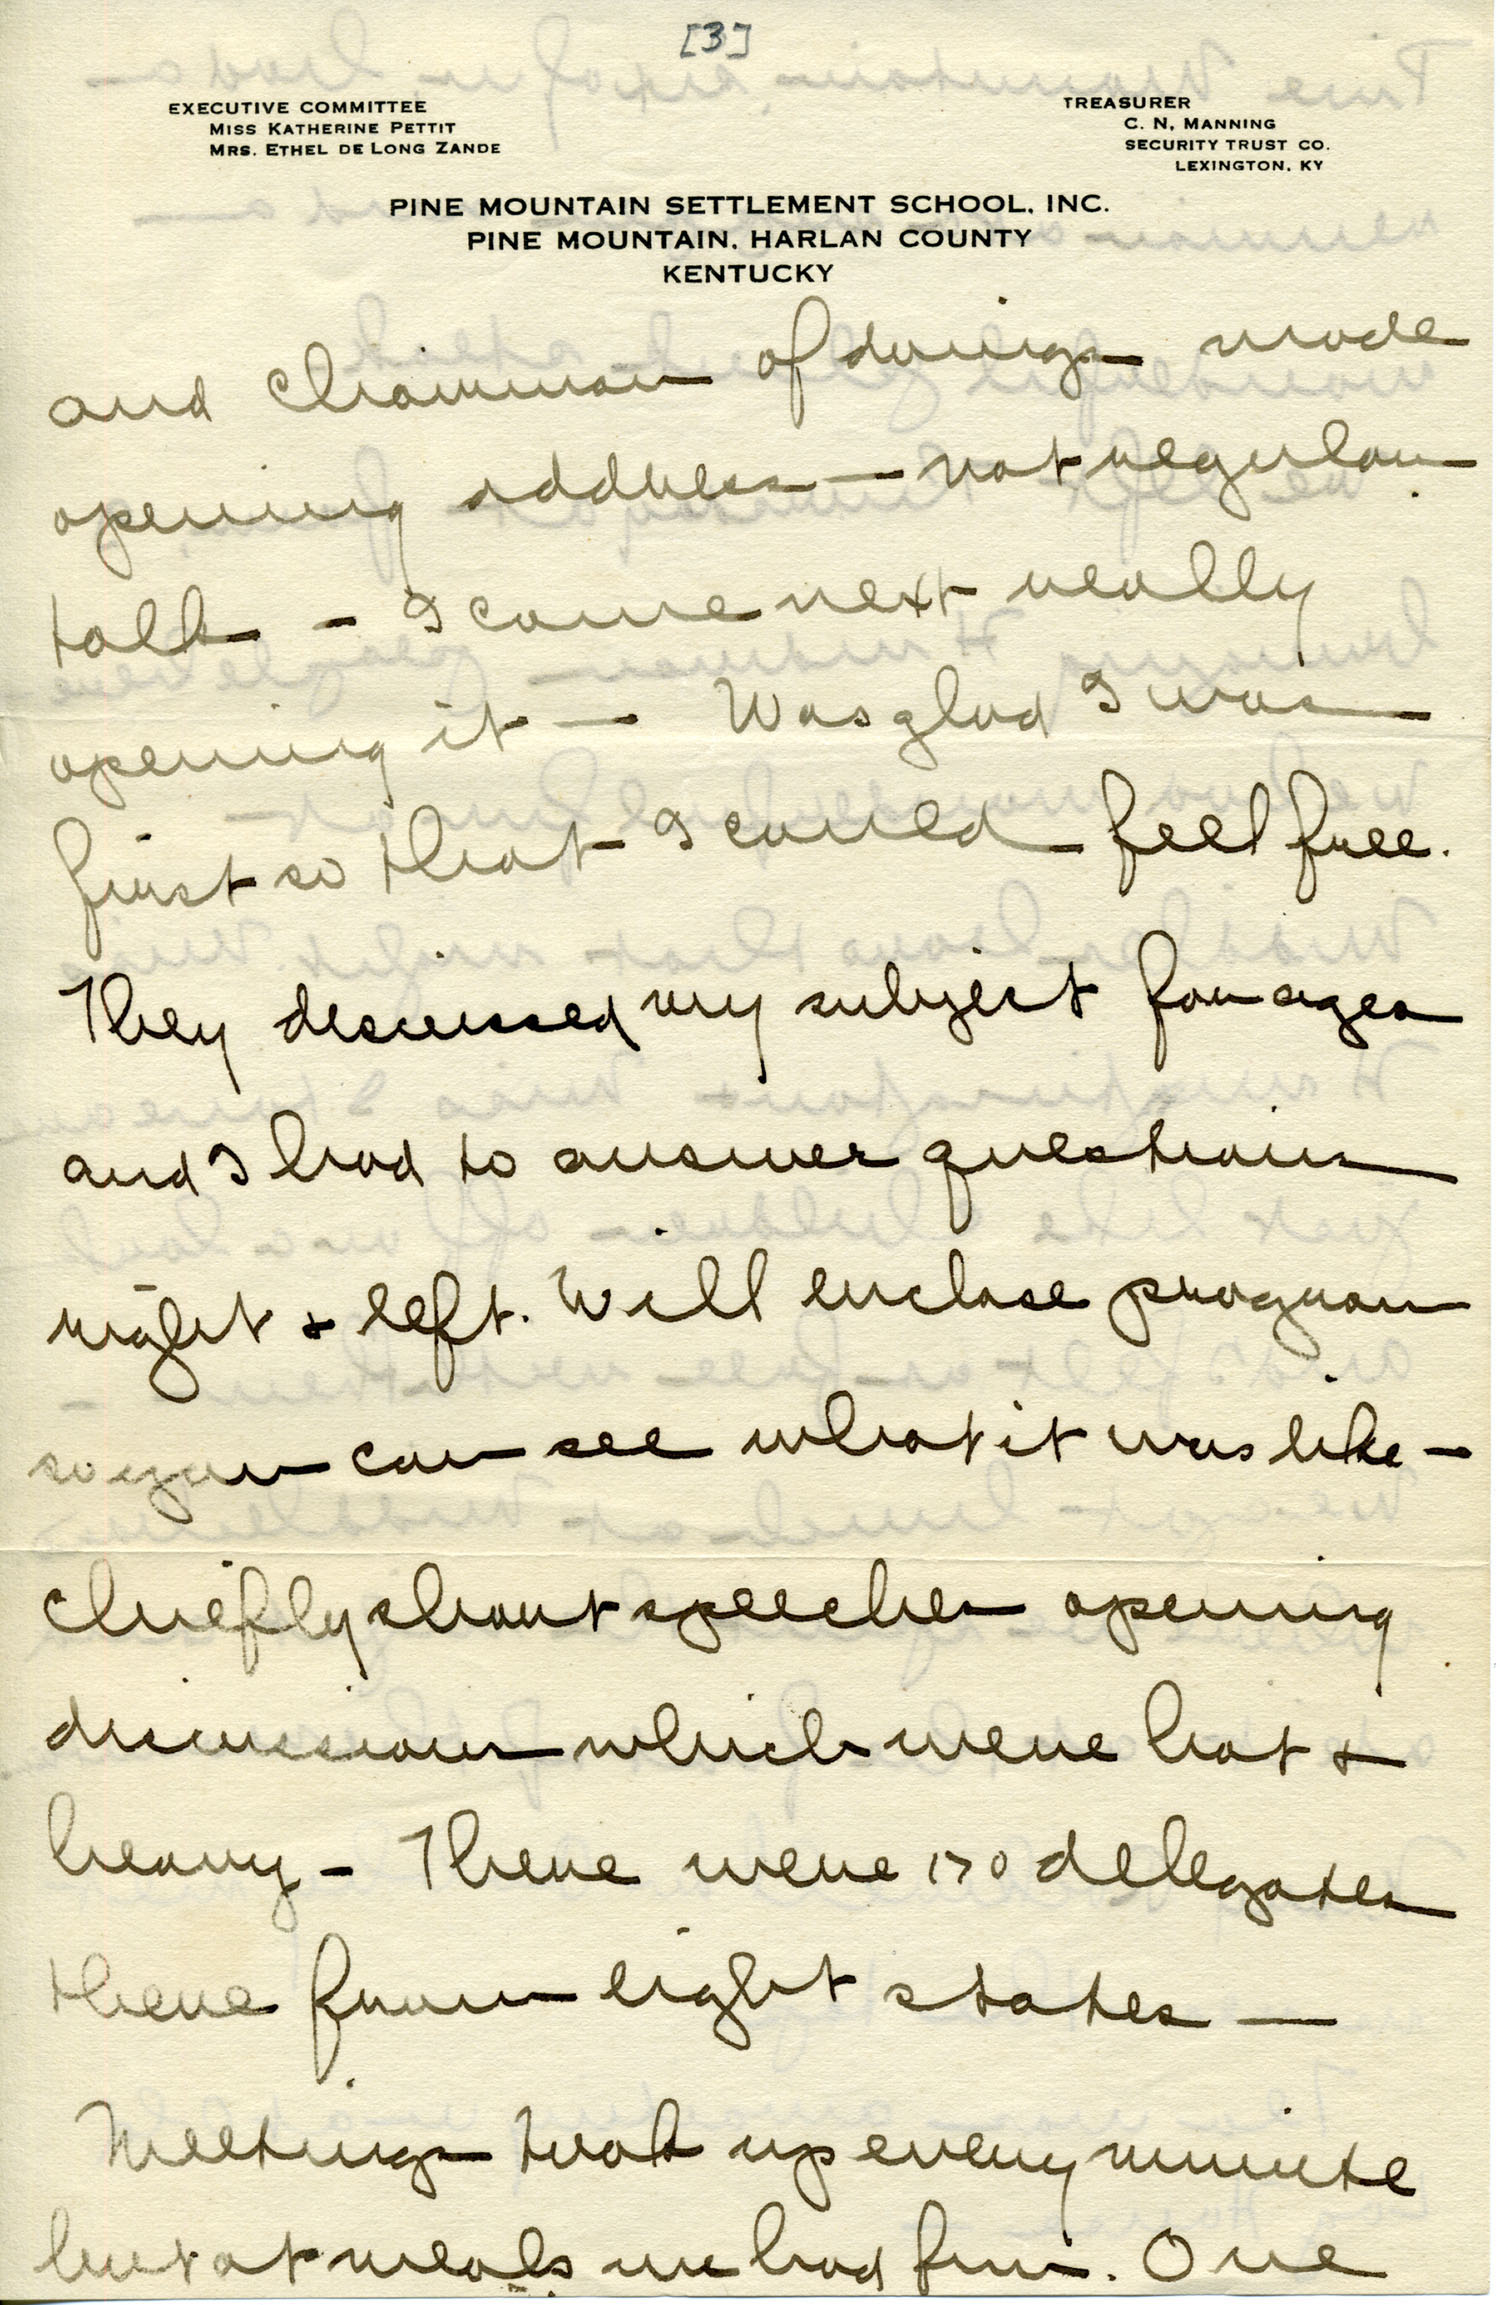 [3]
EXECUTIVE COMMITTEE
MISS KATHERINE PETTIT
MRS. ETHEL DE LONG ZANDE
TREASURER
C. N. MANNING
SECURITY TRUST CO.
LEXINGTON. KY
PINE MOUNTAIN SETTLEMENT SCHOOL, INC.
PINE MOUNTAIN, HARLAN COUNTY
KENTUCKY
and chairman of doings made
opening address — not regular
talk - I came next really
opening it — Was glad I was
first so that I could feel free.
They discussed my subject for ages
and I had to answer questions
right & left. Will enclose program
so you can see what it was like —
chiefly short speeches opening
discussions which were hot &
heavy - There were 170 delegates
there from eight states —
Meetings took up every minute
but at meals we had fun. One